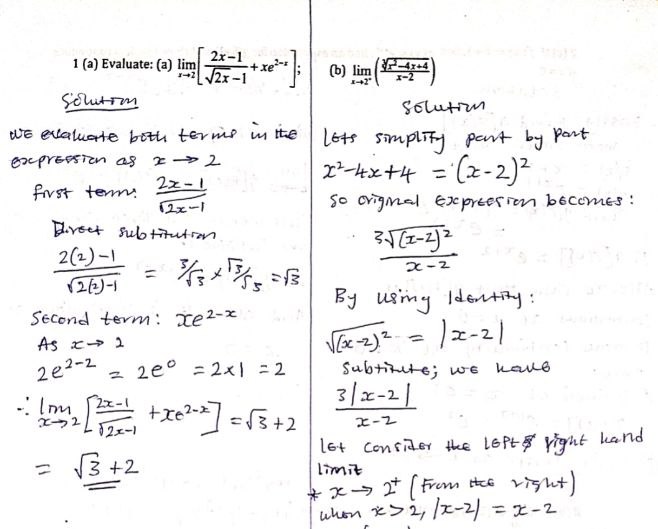 1 (a) Evaluate: (a) lim x→2 [ 2x−1 / √2x −1 + xe^2−x ];
Solution
We evaluate both terms in the
expression as x → 2
first term: 2x−1 / √2x−1
Direct substitution
2(2)−1 / √2(2)−1 = 3/√3 × √3/√3 = √3
Second term: xe^2−x
As x → 2
2e^2−2 = 2e^0 = 2×1 = 2
∴ lim x→2 [ 2x−1 / √2x−1 + xe^2−x ] = √3 + 2
= √3 + 2
(b) lim x→2⁺ ( 3√x²−4x+4 / x−2 )
Solution
Lets simplify part by part
x²−4x+4 = (x−2)²
So original expression becomes:
3√(x−2)² / x−2
By using Identity:
√(x−2)² = |x−2|
Substitute; we have
3|x−2| / x−2
let consider the left & right hand
limit
* x → 2⁺ (from the right)
when x > 2, |x−2| = x−2